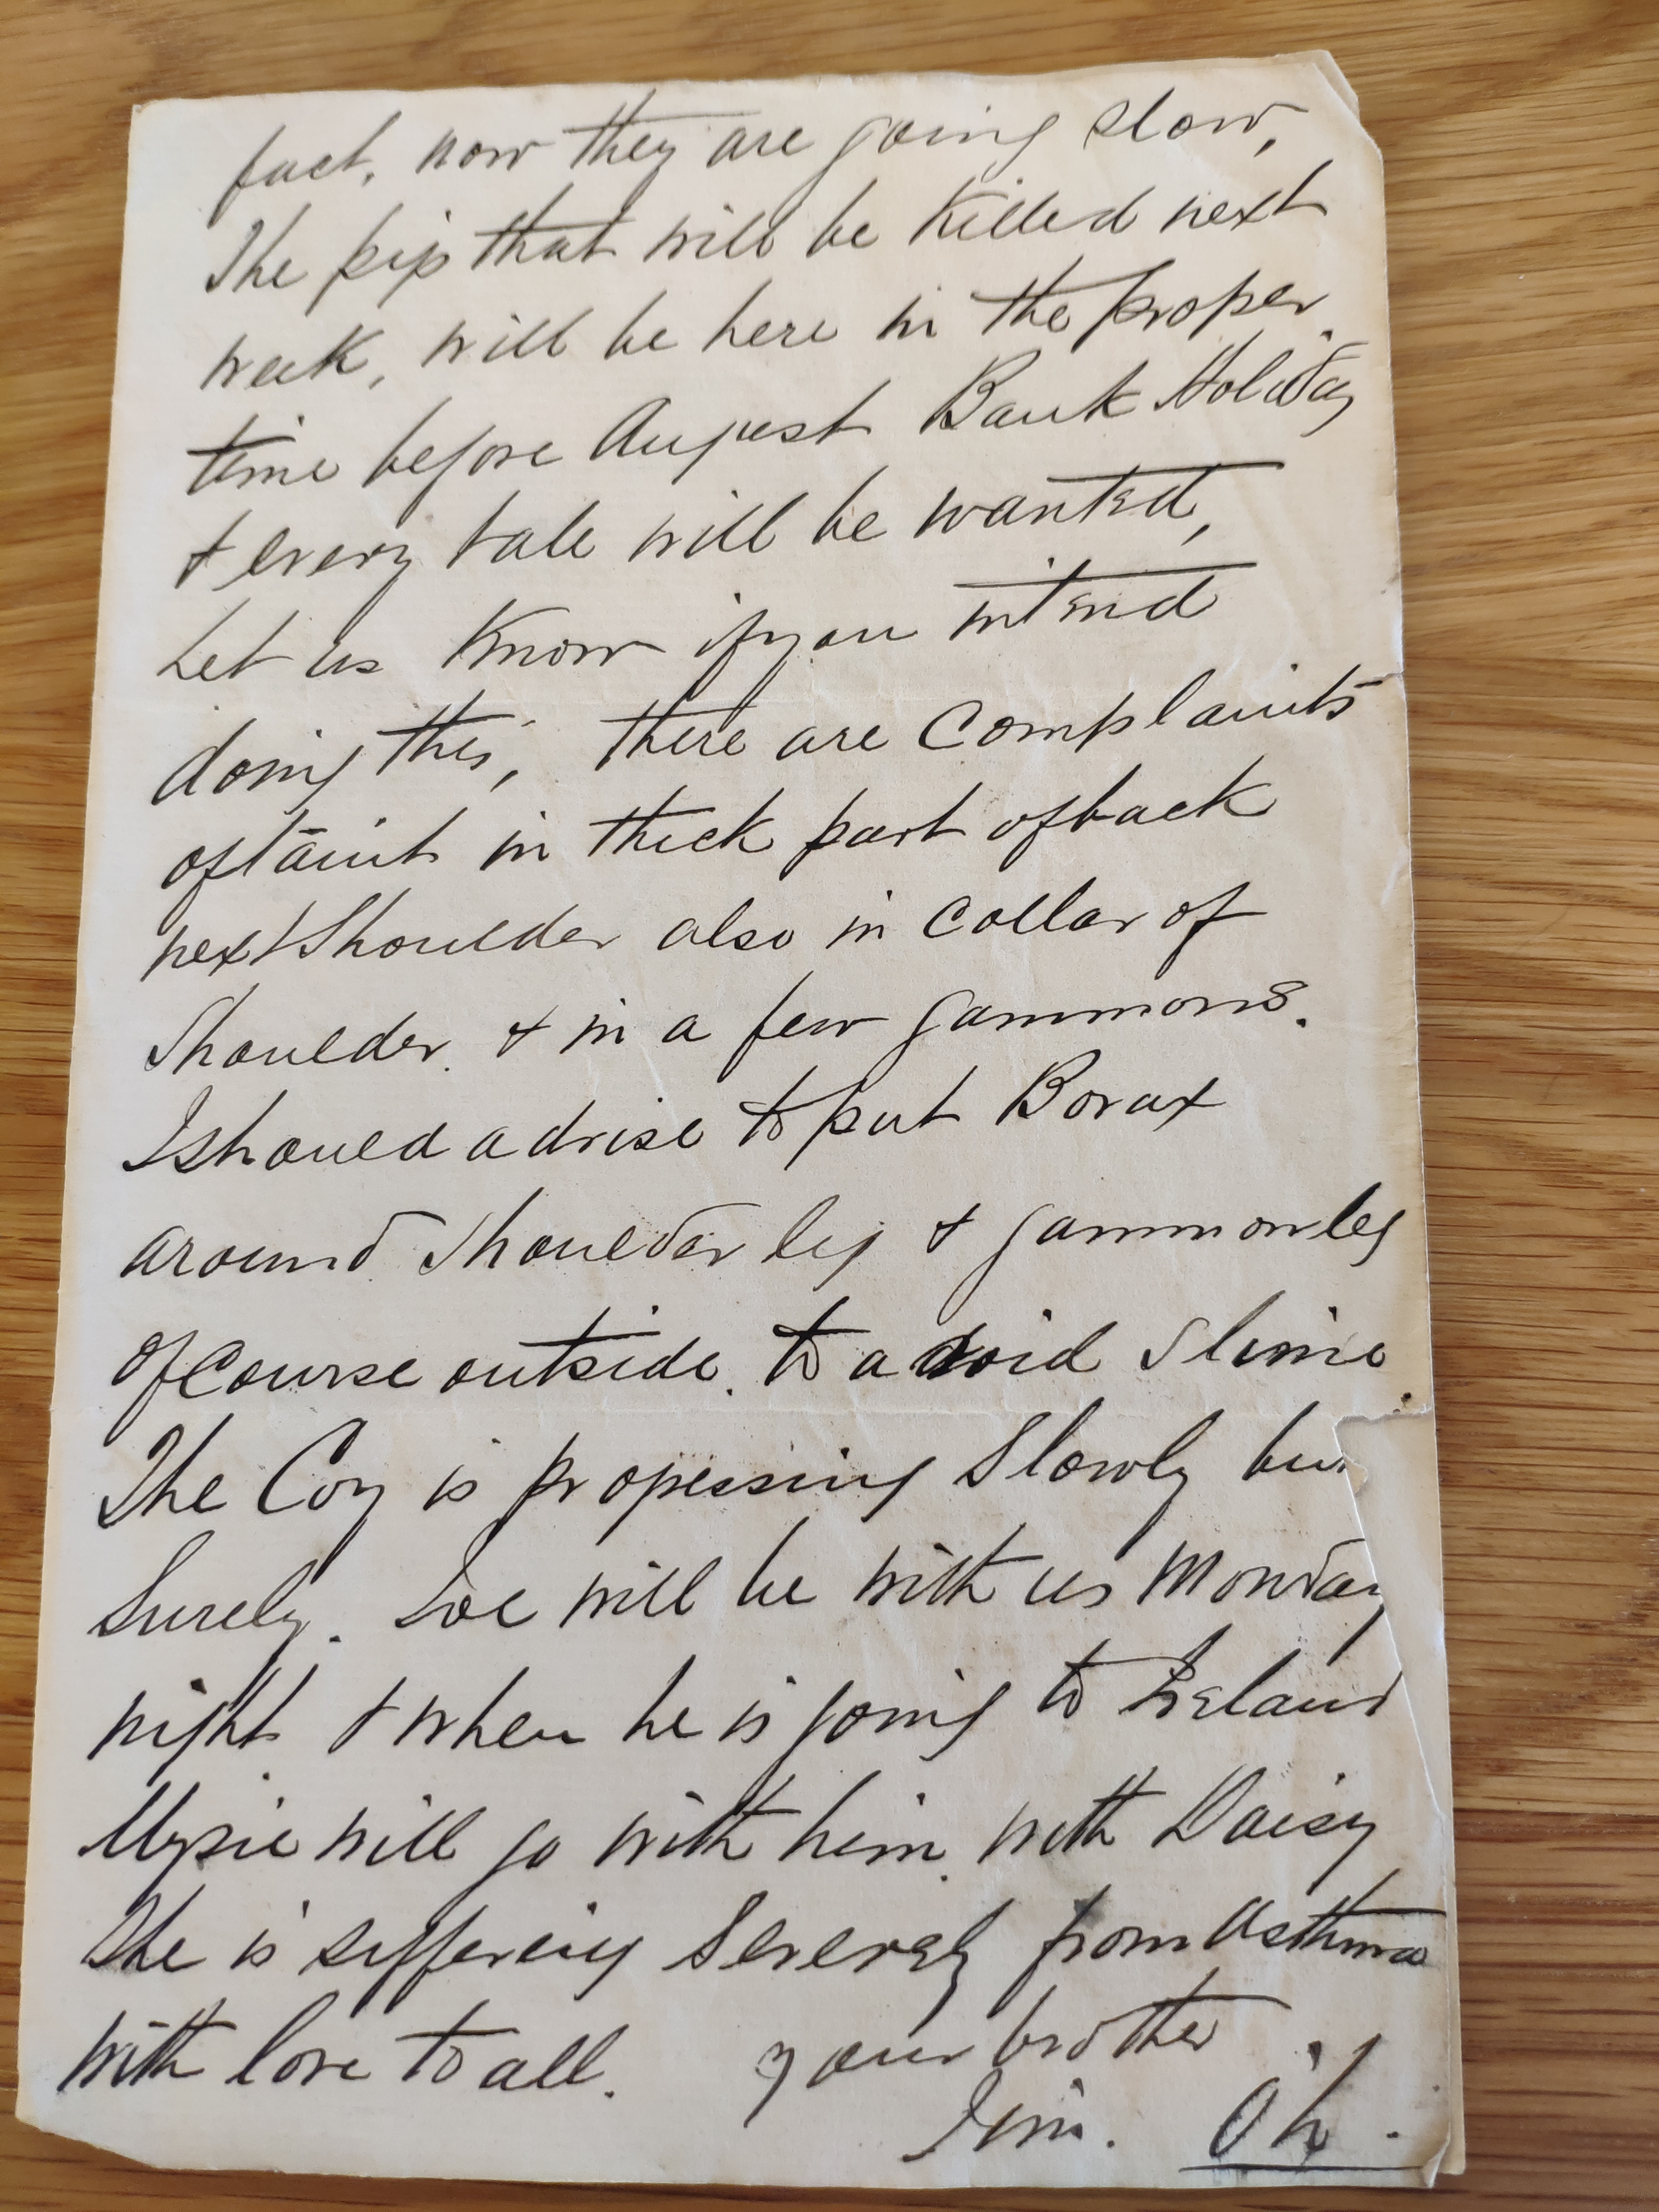 fact, now they are going slow,
The pigs that will be killed next
week, will be here in the proper
time before August Bank Holiday
& every bale will be wanted,
Let us know if you intend
doing this, there are complaints
of taint in thick part of back
next Shoulder also in Collar of
Shoulder. & in a few gammons.
I should advise to put Borax
around Shoulder leg & gammon leg
of Course outside. to avoid Slime.
The Coy is progressing Slowly but
Surely. Joe will be with us Monday
night & when he is going to Ireland
Mysie will go with him. with Daisy
She is suffering Severely from Asthma
with love to all. your brother
Jim. OH.